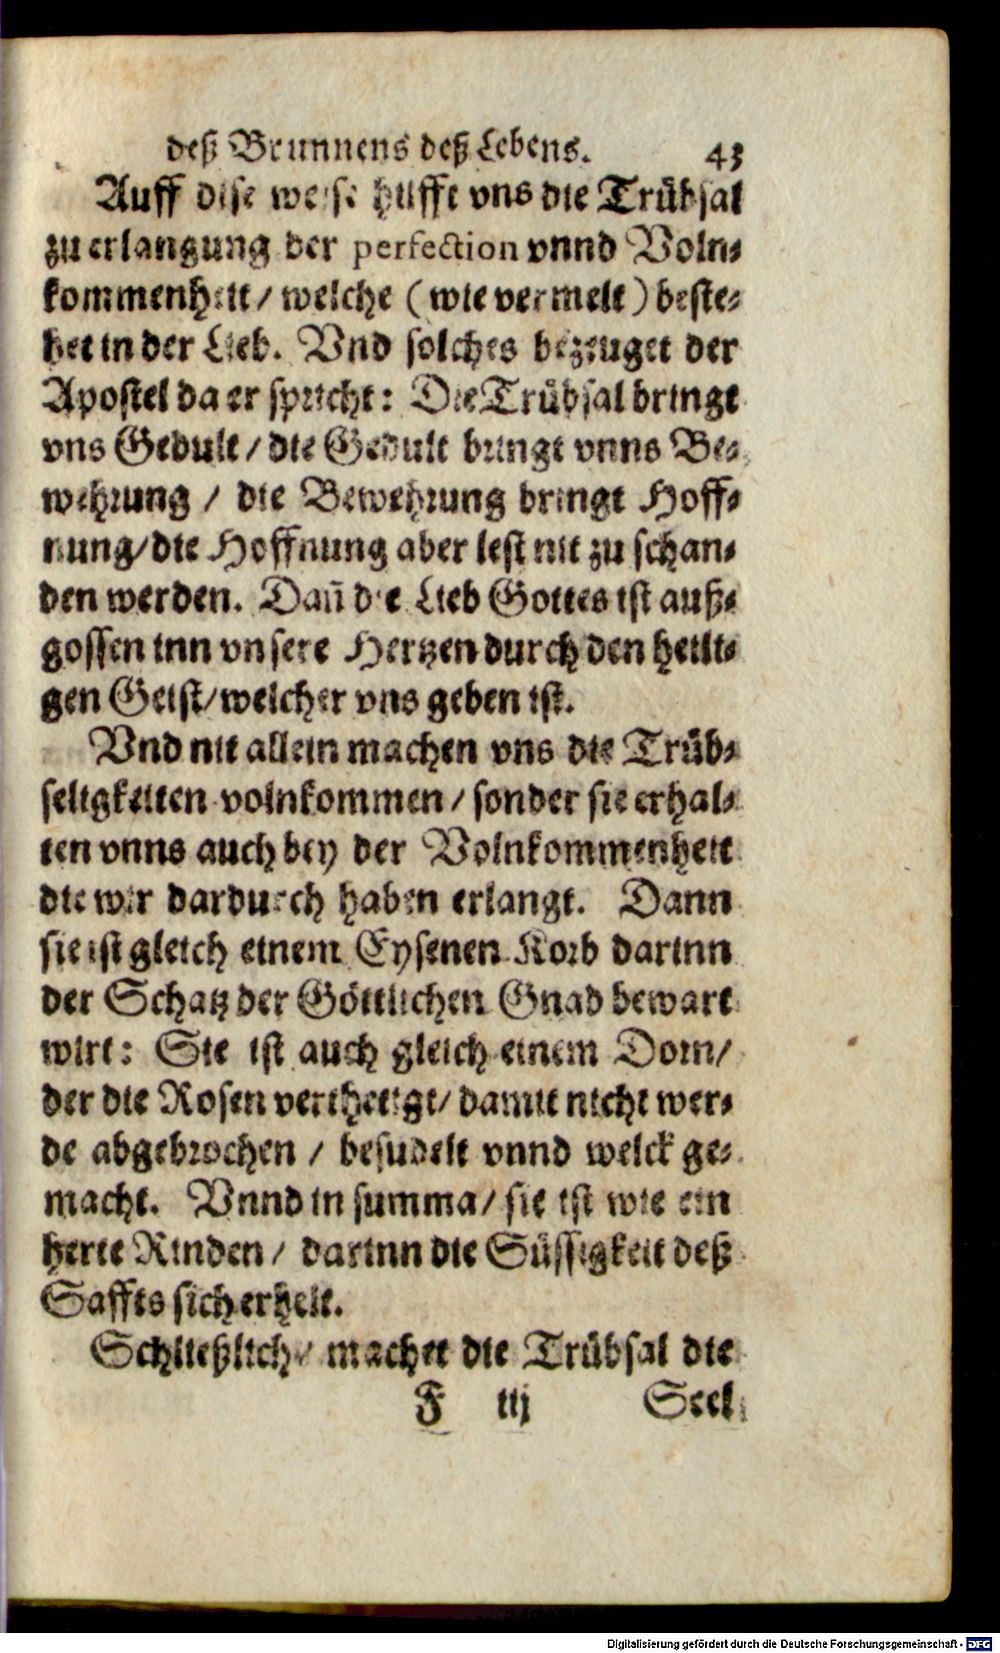 deß Brunnens deß Lebens. 43
Auff dise weise hilfft vns die Trübsal
zu erlangung der perfection vnnd Voln-
kommenheit / welche (wie vermelt) beste-
het in der Lieb. Vnd solches bezeuget der
Apostel da er spricht: Die Trübsal bringt
vns Gedult / die Gedult bringt vnns Be-
wehrung / die Bewehrung bringt Hoff-
nung / die Hoffnung aber lest nit zu schan-
den werden. Dañ die Lieb Gottes ist auß-
gossen inn vnsere Hertzen durch den heili-
gen Geist / welcher vns geben ist.
Vnd nit allein machen vns die Trüb-
seligkeiten volnkommen / sonder sie erhal-
ten vnns auch bey der Volnkommenheit
die wir dardurch haben erlangt. Dann
sie ist gleich einem Eysenen Korb darinn
der Schatz der Göttlichen Gnad bewart
wirt: Sie ist auch gleich einem Dorn /
der die Rosen verthetigt / damit nicht wer-
de abgebrochen / besudelt vnnd welck ge-
macht. Vnnd in summa / sie ist wie ein
herte Rinden / darinn die Süssigkeit deß
Saffts sich erhelt.
Schließlich / machet die Trübsal die
F iij Seel
Digitalisierung gefördert durch die Deutsche Forschungsgemeinschaft - DFG